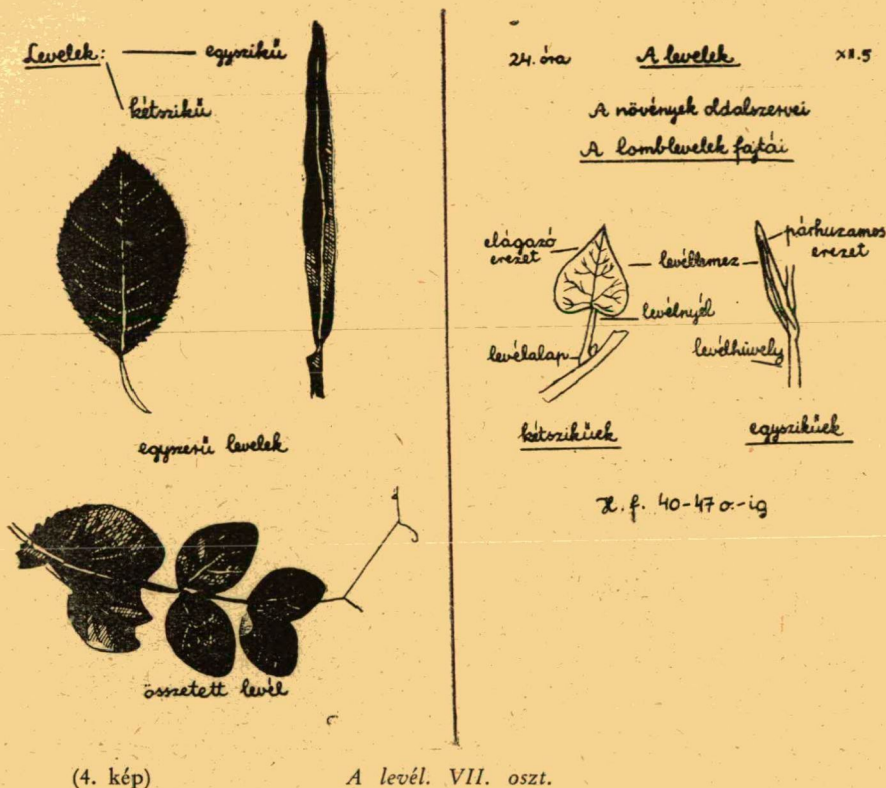 Levelek: egyszikű
kétszikű
egyszerű levelek
összetett levél
24. óra A levelek XII.5
A növények oldalszervei
A lomblevelek fajtái
elágazó
erezet
levéllemez
párhuzamos
erezet
levélnyél
levélalap
levélhüvely
kétszikűek
egyszikűek
H. f. 40-47 o.-ig
(4. kép) A levél. VII. oszt.